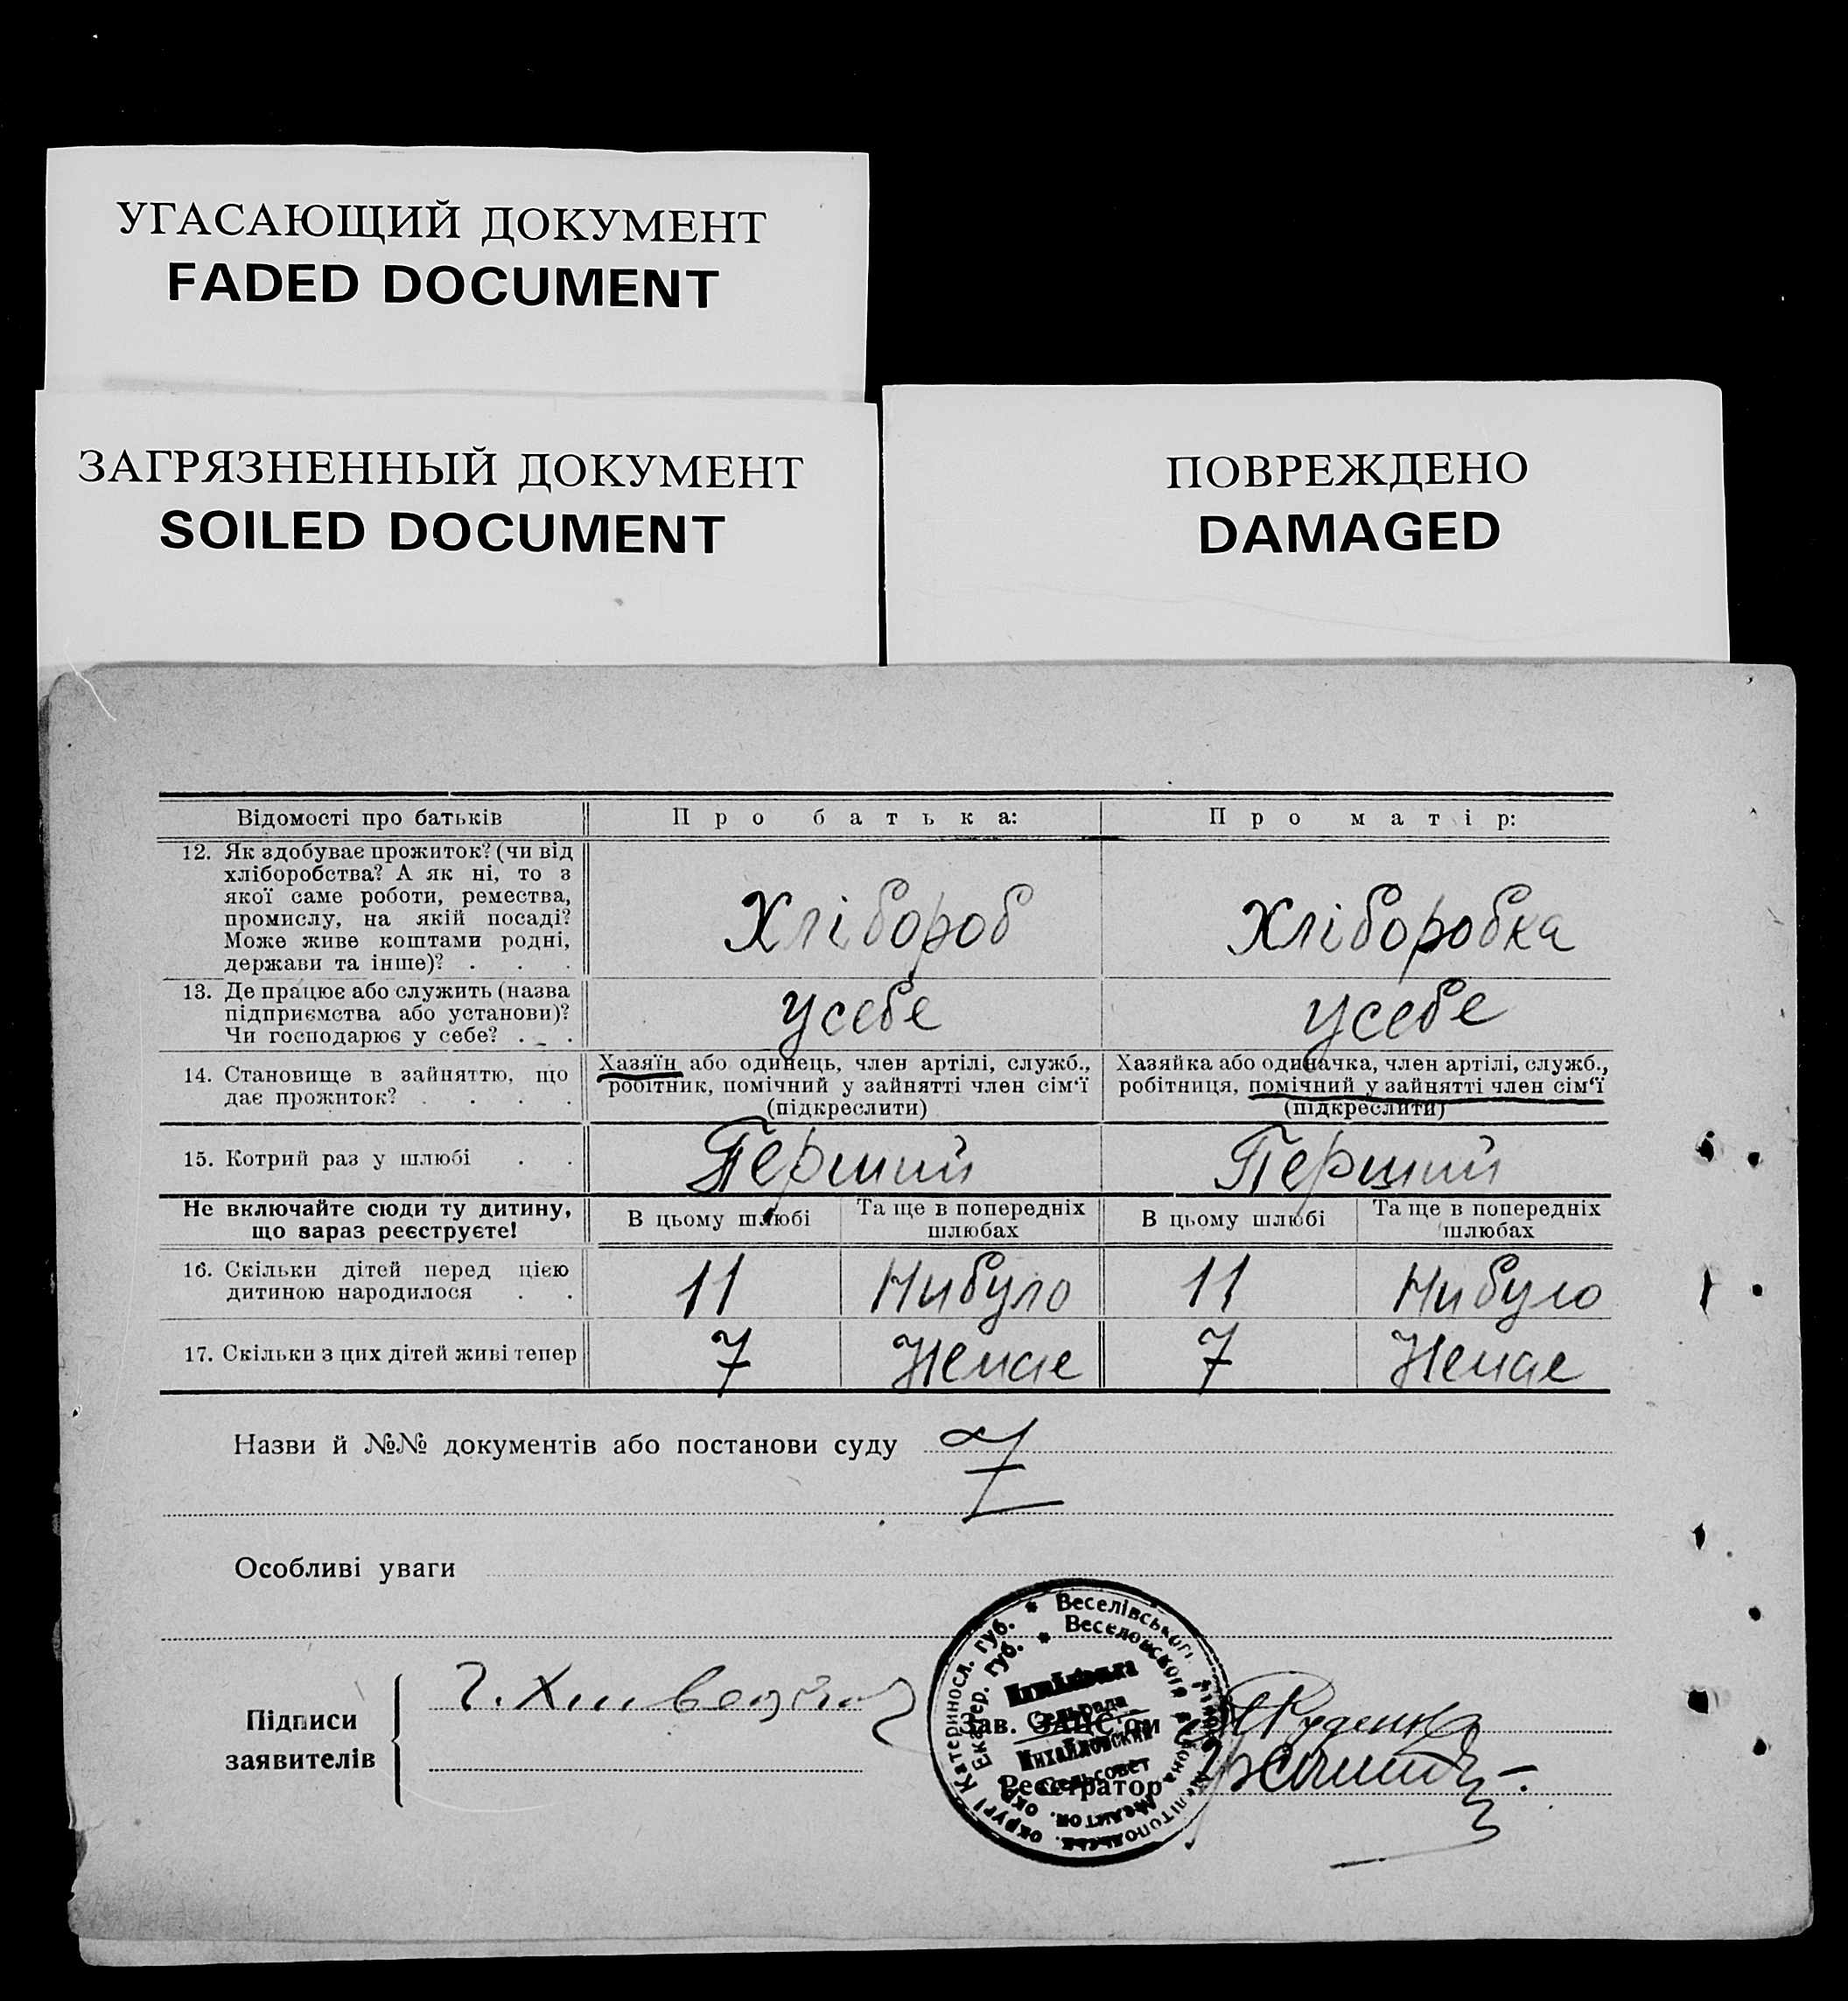 УГАСАЮЩИЙ ДОКУМЕНТ
FADED DOCUMENT
ЗАГРЯЗНЕННЫЙ ДОКУМЕНТ
SOILED DOCUMENT
ПОВРЕЖДЕНО
DAMAGED
Відомості про батьків
Про батька:
Про матір:
12. Як здобуває прожиток? (чи від
хліборобства? А як ні, то з
якої саме роботи, ремества,
промислу, на якій посаді?
Може живе коштами родні,
держави та інше)? . . .
Хлібороб
Хліборобка
13. Де працює або служить (назва
підприємства або установи)?
Чи господарює у себе? . . .
усебе
усебе
14. Становище в зайняттю, що
дає прожиток? . . . .
Хазяїн або одинець, член артілі, служб.,
робітник, помічний у зайнятті член сім'ї
(підкреслити)
Хазяйка або одиначка, член артілі, служб.,
робітниця, помічний у зайнятті член сім'ї
(підкреслити)
15. Котрий раз у шлюбі . .
Перший
Перший
Не включайте сюди ту дитину,
що зараз реєструєте!
В цьому шлюбі
Та ще в попередніх
шлюбах
В цьому шлюбі
Та ще в попередніх
шлюбах
16. Скільки дітей перед цією
дитиною народилося . .
11
Нибуло
11
Нибуло
17. Скільки з цих дітей живі тепер
7
Немае
7
Немае
Назви й №№ документів або постанови суду
Особливі уваги
Підписи
заявителів
Зав. ЗАЦС'ом
Руденко
Реєстратор
Веселівського
Мелітопольськ. округі Катериносл. губ.
Веселовской района
Мелитоп. окр. Екатер. губ.
Сельрада
Михайловский
Сельсовет